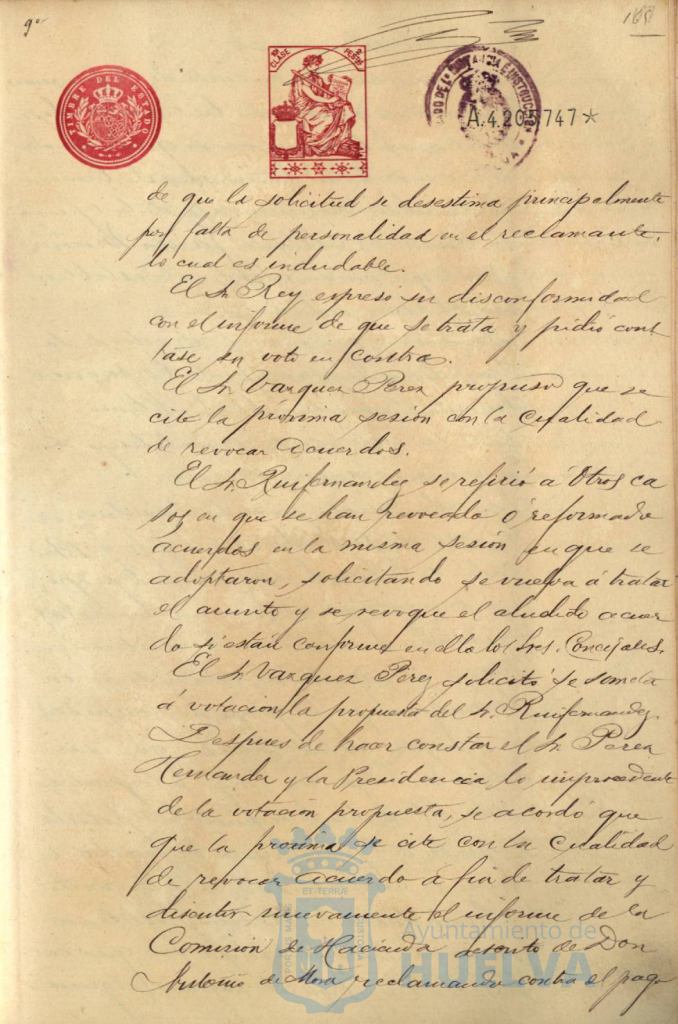 9º
160
TIMBRE DEL ESTADO
10ª CLASE 2 PESETAS
A.4.205,747*
de que la solicitud se desestima principalmente
por falta de personalidad en el reclamante,
lo cual es indudable.
El Sr. Rey expresó su disconformidad
con el informe de que se trata y pidió cons
tase su voto en contra.
El Sr. Vazquez Perez propuso que se
cite la próxima sesión con la cualidad
de revocar acuerdos.
El Sr. Ruifernandez se refirió á otros ca
sos en que se han revocado ó reformado
acuerdos en la misma sesión en que se
adoptaron, solicitando se vuelva á tratar
el asunto y se revoque el aludido acuer
do si están conforme en ello los Sres. Concejales.
El Sr. Vazquez Perez solicitó se someta
á votacion la propuesta del Sr. Ruifernandez.
Despues de hacer constar el Sr. Perez
Hernandez y la Presidencia lo improcedente
de la votación propuesta, se acordó que
que la proxima se cite con la cualidad
de revocar acuerdo á fin de tratar y
discutir nuevamente el informe de la
Comisión de Hacienda escrito de Don
Antonio de Mora reclamando contra el pago
Ayuntamiento de
HUELVA